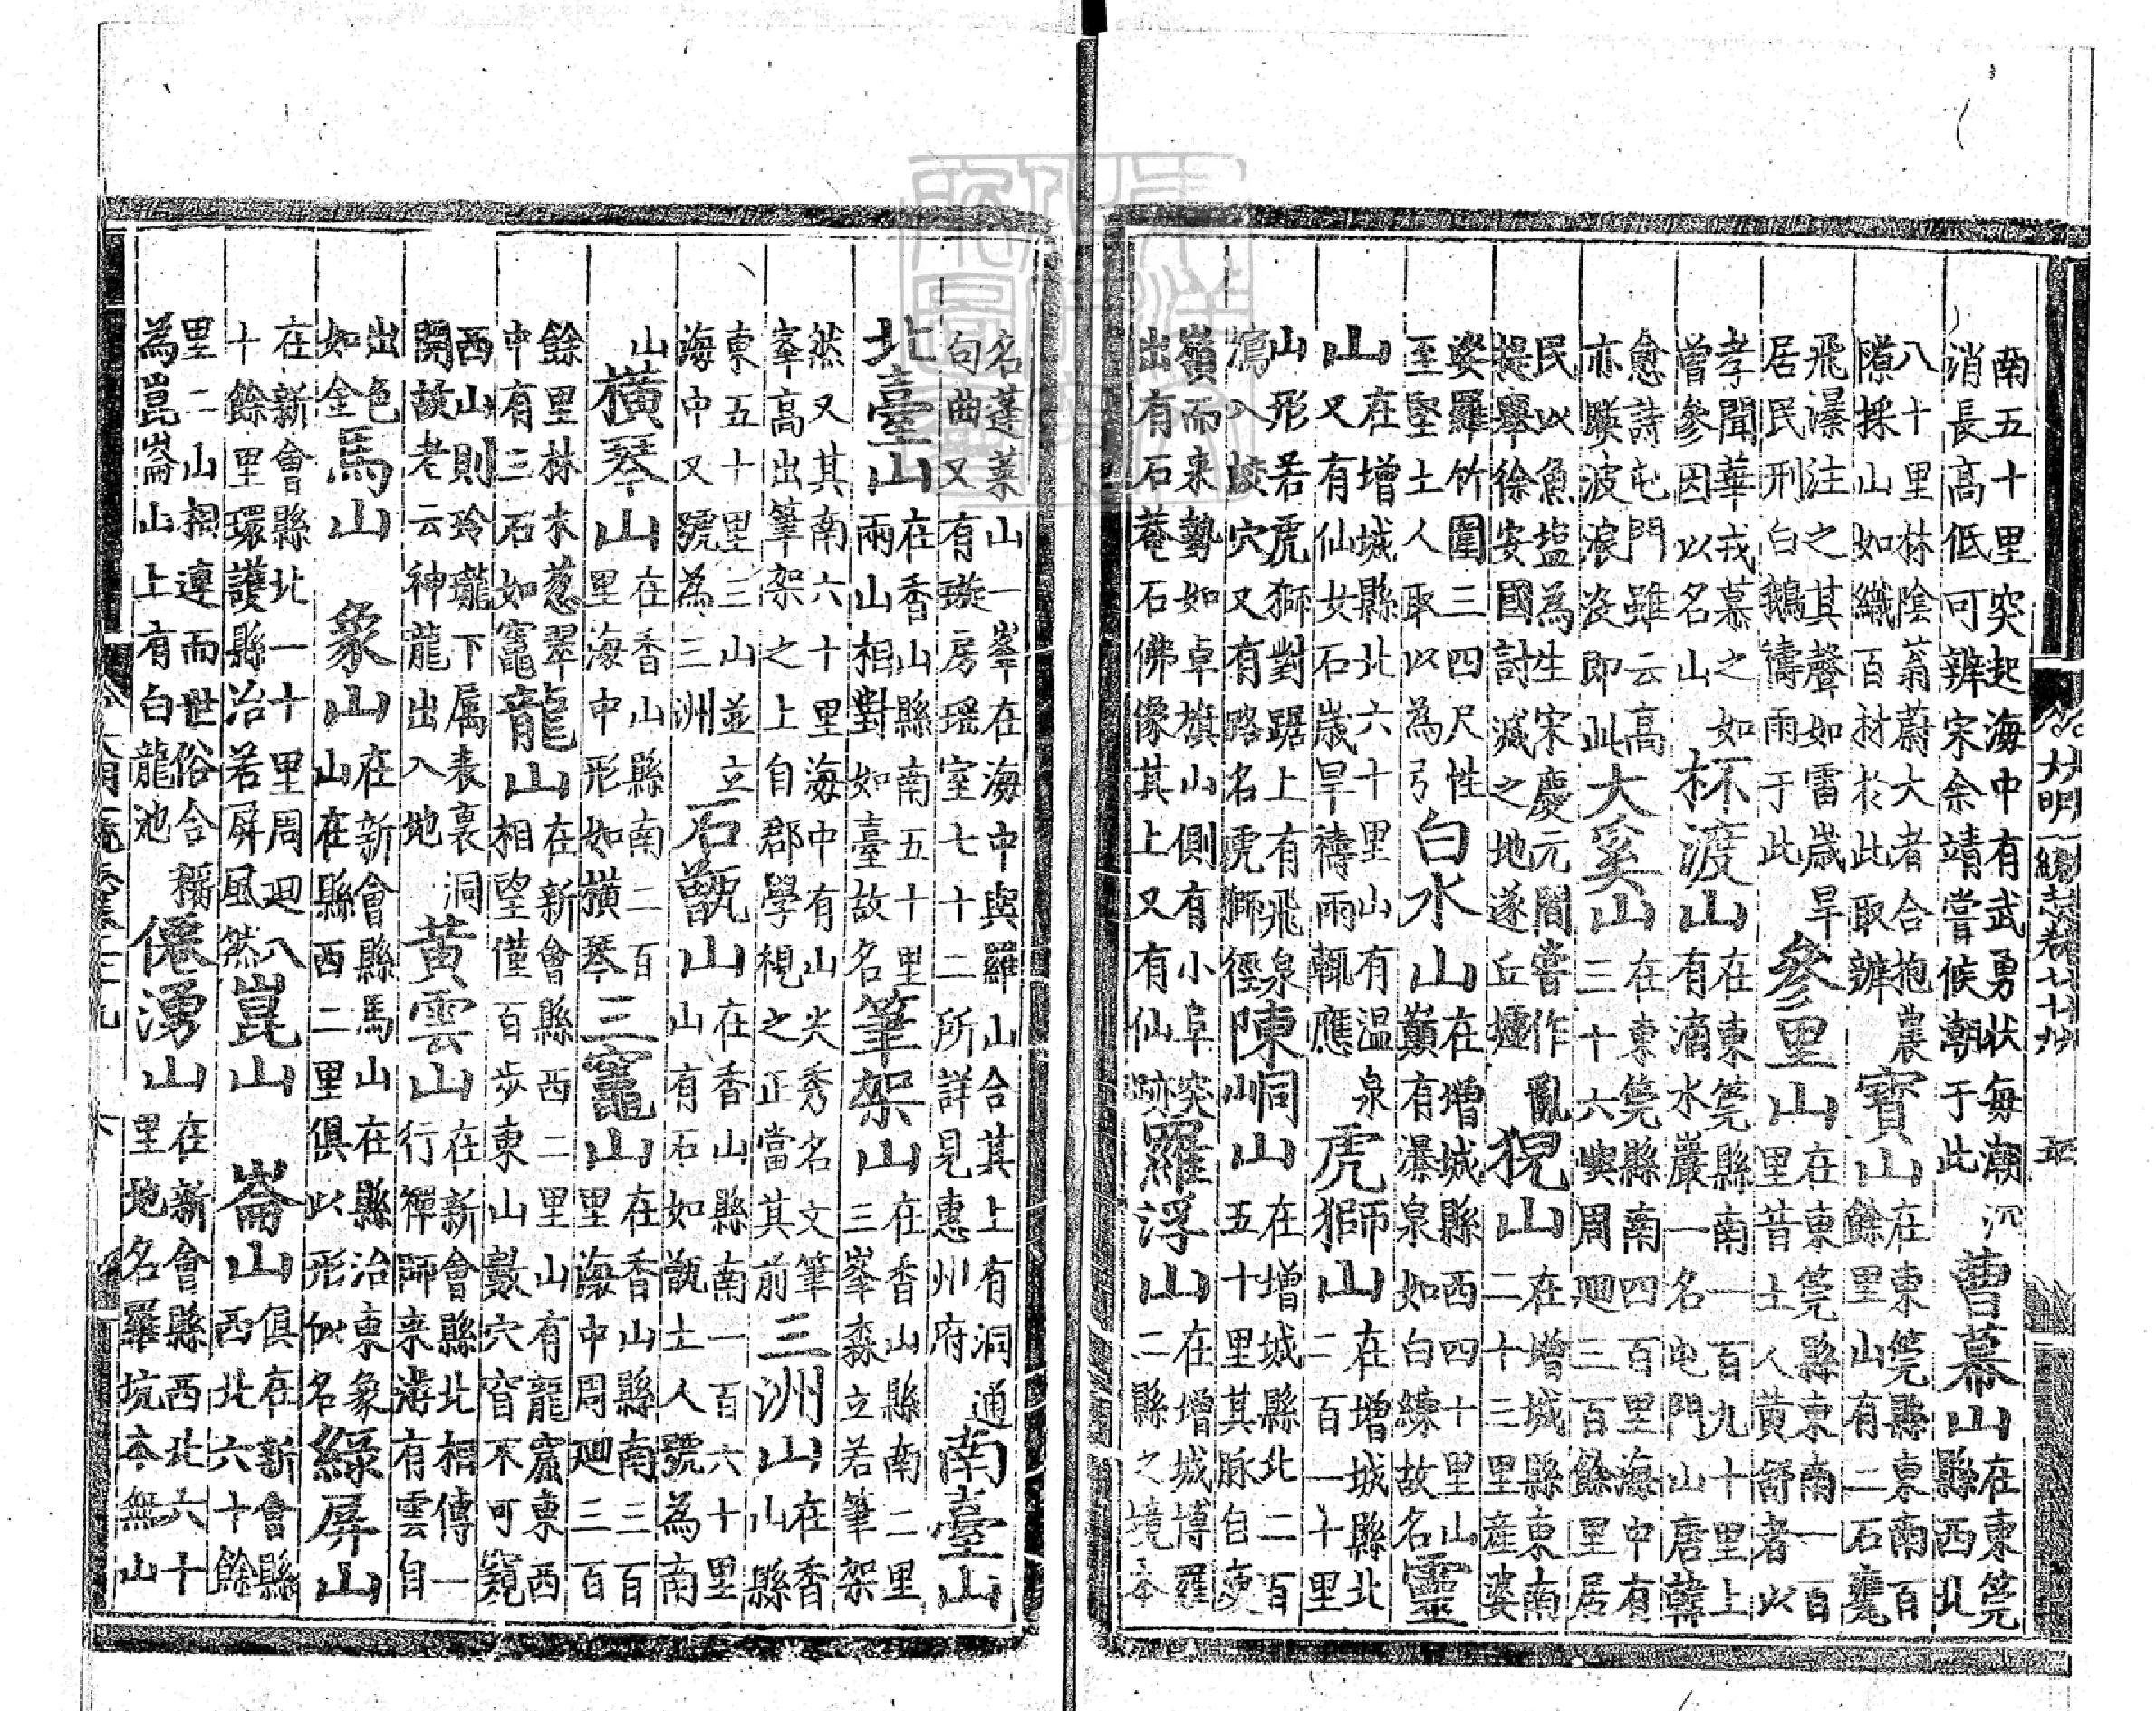 大明一統志卷七十九 五
南五十里突起海中有武勇状每潮汛
消長高低可辨宋余靖嘗候潮于此
曹幕山
在東莞
縣西北
八十里林陰蓊蔚大者合抱農
隙採山如織百材於此取辦
寶山
在東莞縣東南百
餘里山有二石甕
飛瀑注之其聲如雷歲旱
居民刑白鵝禱雨于此
參里山
在東莞縣東南一百
里昔士人黄舒者以
孝聞華戎慕之如
曾參因以名山
杯渡山
在東莞縣南一百九十里上
有滴水巖一名屯門山唐韓
愈詩屯門雖云高
亦暎波浪即此
大奚山
在東莞縣南四百里海中有
三十六嶼周廻三百餘里居
民以魚塩為生宋慶元間嘗作亂
提舉徐安國討滅之地遂丘墟
猊山
在增城縣東南
二十三里產娑
娑羅竹圍三四尺性
至堅土人取以為弓
白水山
在增城縣西四十里山
巔有瀑泉如白練故名
靈
山
在增城縣北六十里山有温泉
又有仙女石歲旱禱雨輒應
虎獅山
在增城縣北
二百一十里
山形若虎獅對踞上有飛泉
瀉入蛟穴又有路名虎獅徑
陳峒山
在增城縣北二百
五十里其脉自庾
嶺而来勢如卓旗山側有小阜突
出有石菴石佛像其上又有仙跡
羅浮山
在增城博羅
二縣之境本
名蓬萊山一峯在海中與羅山合其上有洞通
句曲又有璇房瑶室七十二所詳見惠州府
南臺山
北臺山
在香山縣南五十里
兩山相對如臺故名
筆架山
在香山縣南二里
三峯森立若筆架
然又其南六十里海中有山尖秀名文筆
峯高出筆架之上自郡學視之正當其前
三洲山
在香
山縣
東五十里三山並立
海中又號為三洲
石甑山
在香山縣南一百六十里
山有石如甑土人號為南
山
橫琴山
在香山縣南二百
里海中形如橫琴
三竈山
在香山縣南三百
里海中周廻三百
餘里林木葱翠
中有三石如竈
龍山
在新會縣西二里山有龍窟東西
相望僅百步東山數穴窅不可窺
西山則玲瓏下屬表裏洞
開故老云神龍出入地
黃雲山
在新會縣北相傳一
行禪師来遊有雲自
出色
如金
馬山
象山
在新會縣馬山在縣治東象
山在縣西二里俱以形似名
綠屏山
在新會縣北一十里周廻八
十餘里環護縣治若屏風然
崑山
崙山
俱在新會縣
西北六十餘
里二山相連而世俗合稱
為崑崙山上有白龍池
僊湧山
在新會縣西北六十
里地名羅坑夲無山